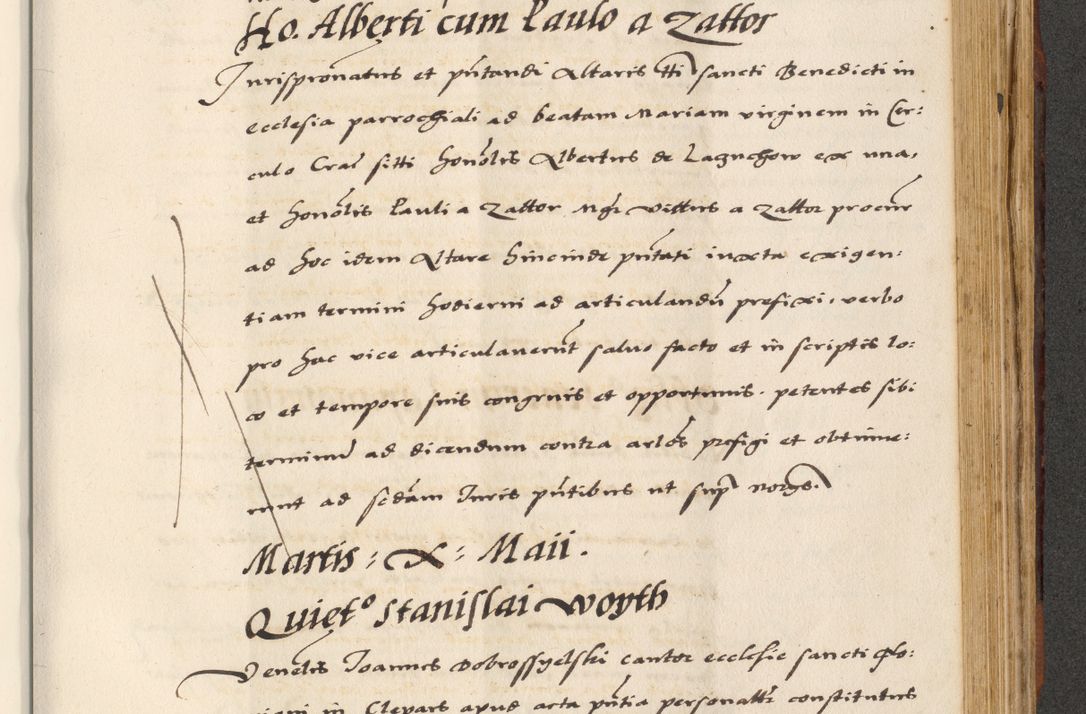 Ho. Alberti cum Paulo a Zattor
Jurispronatus et pñtandi Altaris tti sancti Benedicti in
ecclesia parrochiali ad beatam Mariam virginem in Cir:
culo Crac sitti honolis Albertus de Laznchow ex una,
et honolis Pauli a Zattor Mgr vittus a Zattor procur
ad hoc idem Altare hincinde pñtati iuxta exigen:
tiam termini hodierni ad articulandũ prefixi, verbo
pro hac vice articulaverũt salvo facto et in scriptis lo:
co et tempore suis congruis et opportunis. petentes sibi
terminũ ad dicendum contra arlos prefigi et obtinue:
runt ad scdam Juris pñtibus ut sup norgs.
Martis : X : Maii .
Quietº Stanislai Woyth
Venelis Joannes Dobrossyelski cantor ecclesie sancti Flo:
riani in Cleparz apud acta pñtia personalr constitutus